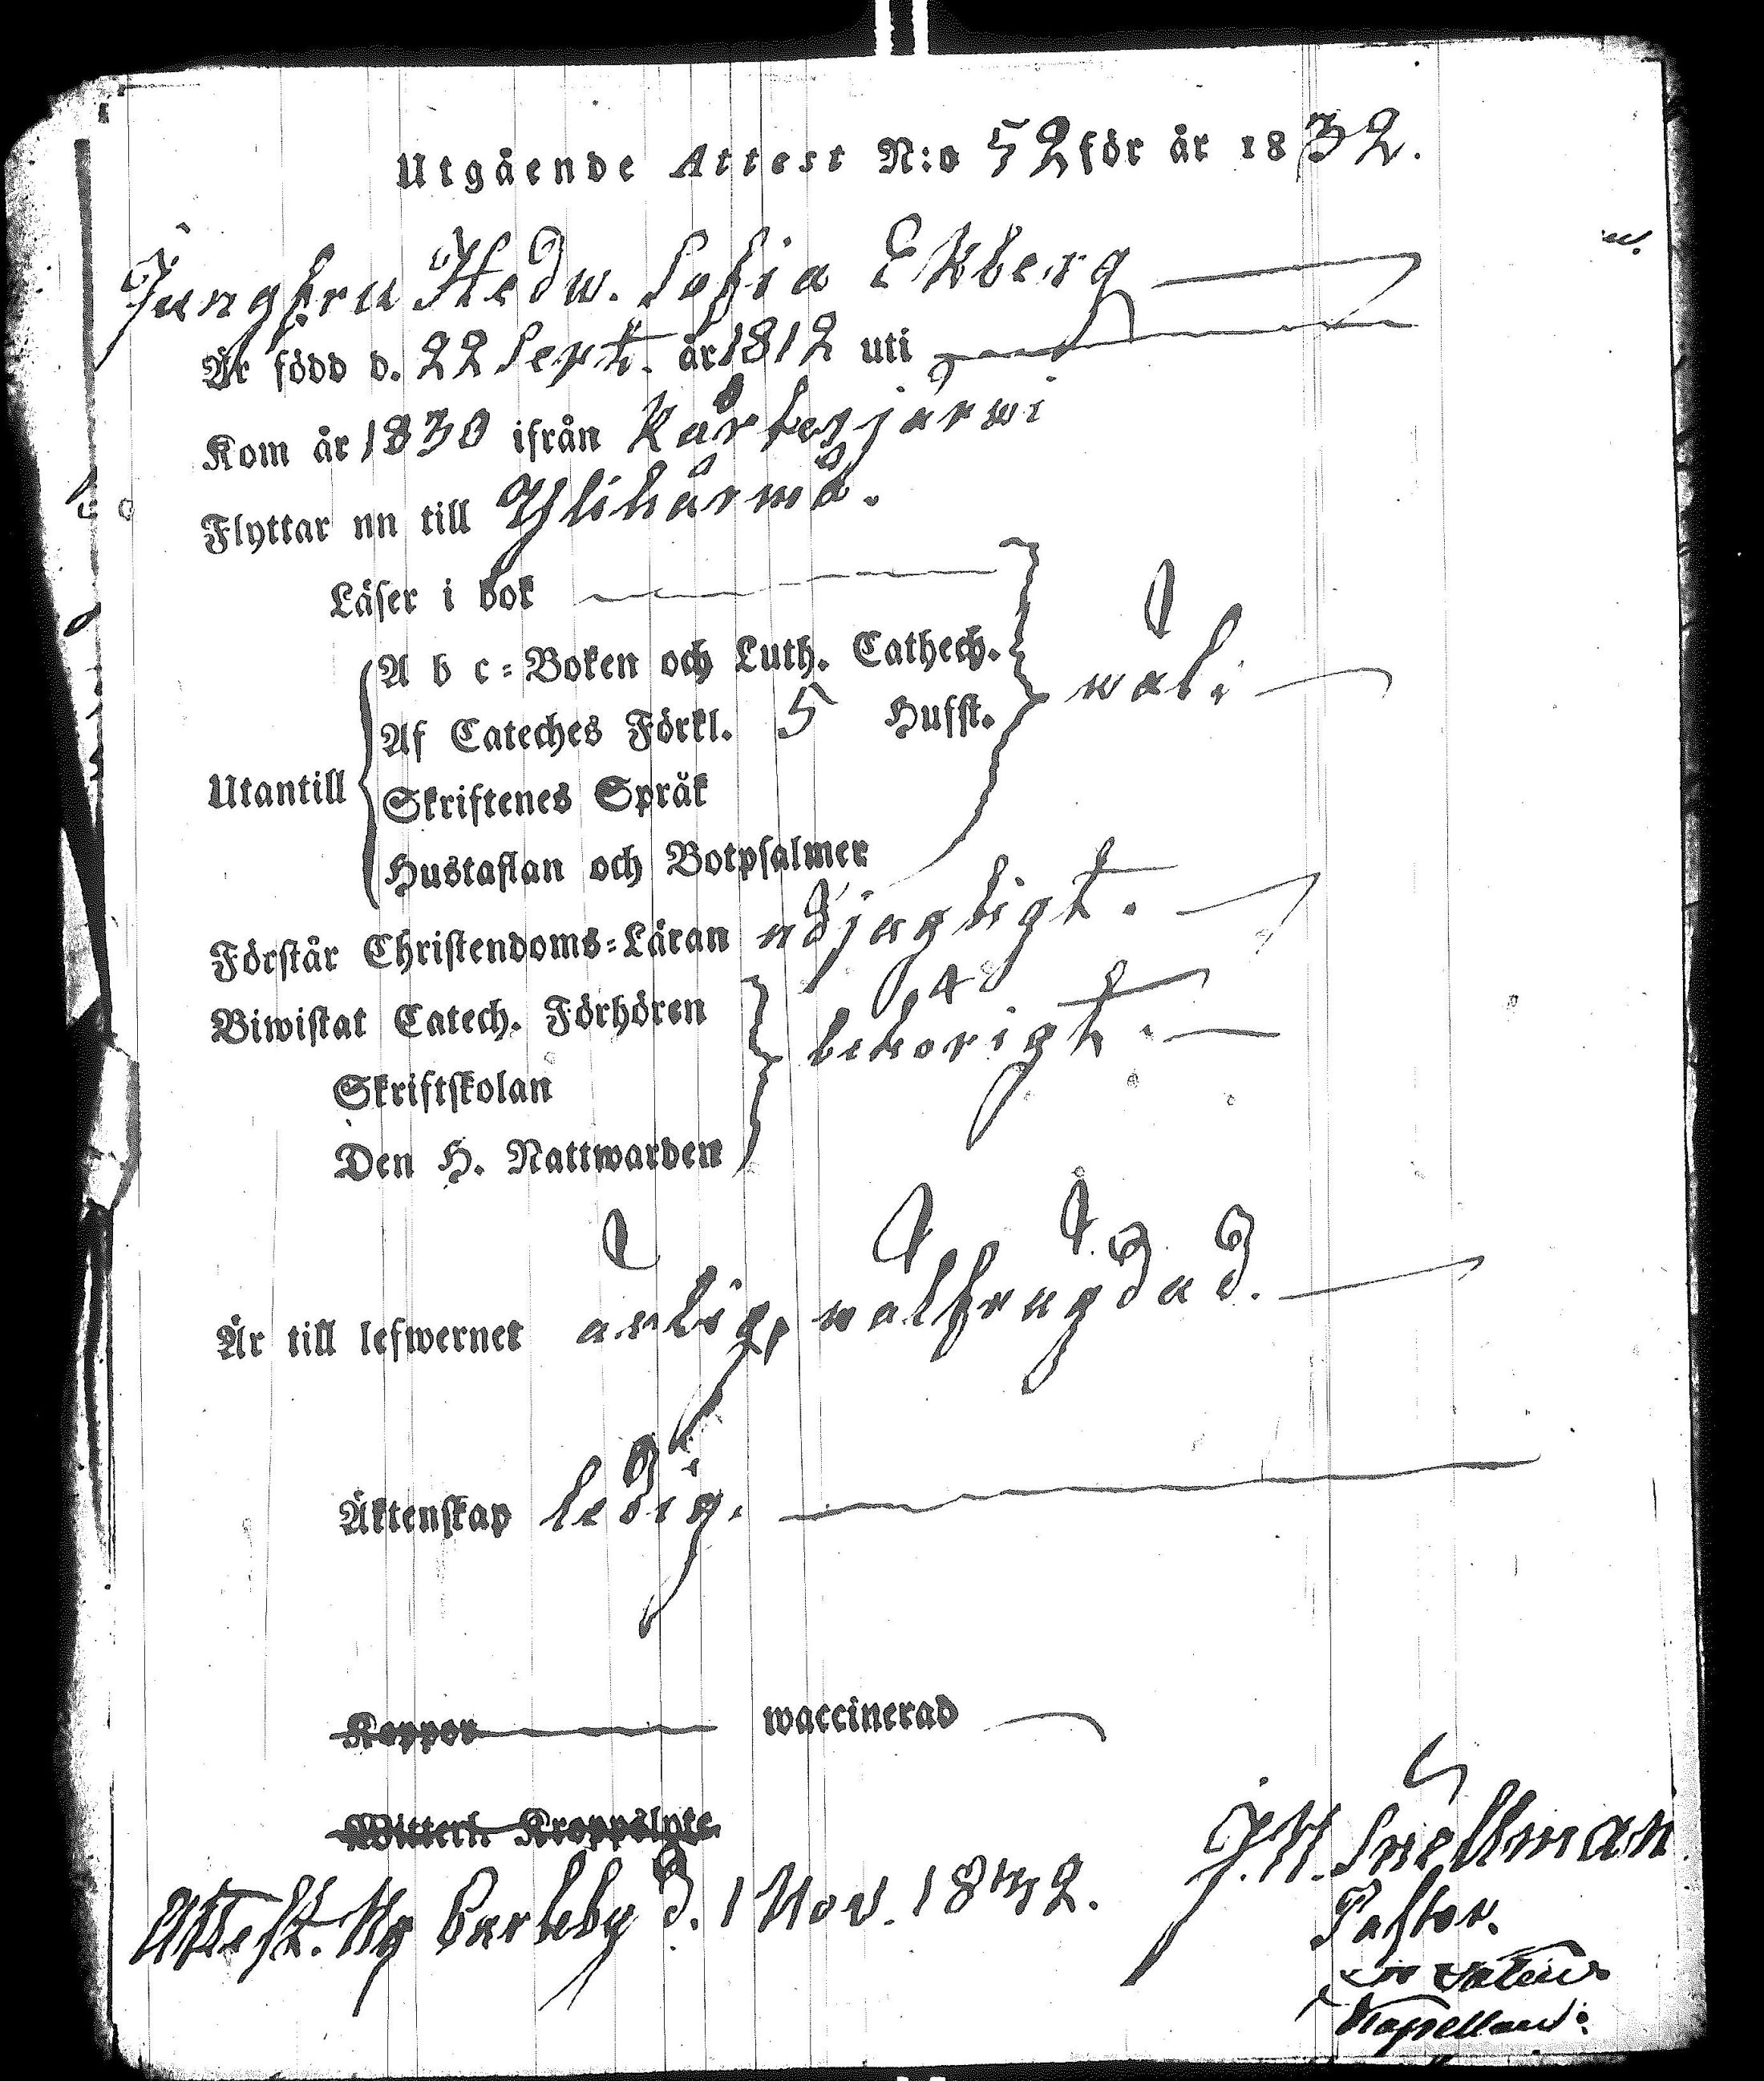 Utgående Attest N:o 52 för år 1832.
Jungfru Hedw. Sofia Ekberg
Är född d. 22 Sept. år 1812 uti
Kom år 1830 ifrån Kårtesjärwi
Flyttar nn till Ylihärmä.
Läser i bok
A b c-Boken och Luth. Cathech.
Af Cateches Förkl. 5 Hufst. wäl.
Utantill
Skriftenes Språk
Hustaflan och Botpsalmer
Förstår Christendoms-Läran nöjagligt.
Biwistat Catech. Förhören
behörigt.
Skriftskolan
Den H. Nattwarden
Är till lefwernet ärlig, wälfrägdad.
Äktenskap ledig.
Koppor waccinerad
Witterl. Kroppslyte.
Attest. Ny Carleby d. 1 Nov. 1832. J.W. Snellman
Pastor.
Kapellan.